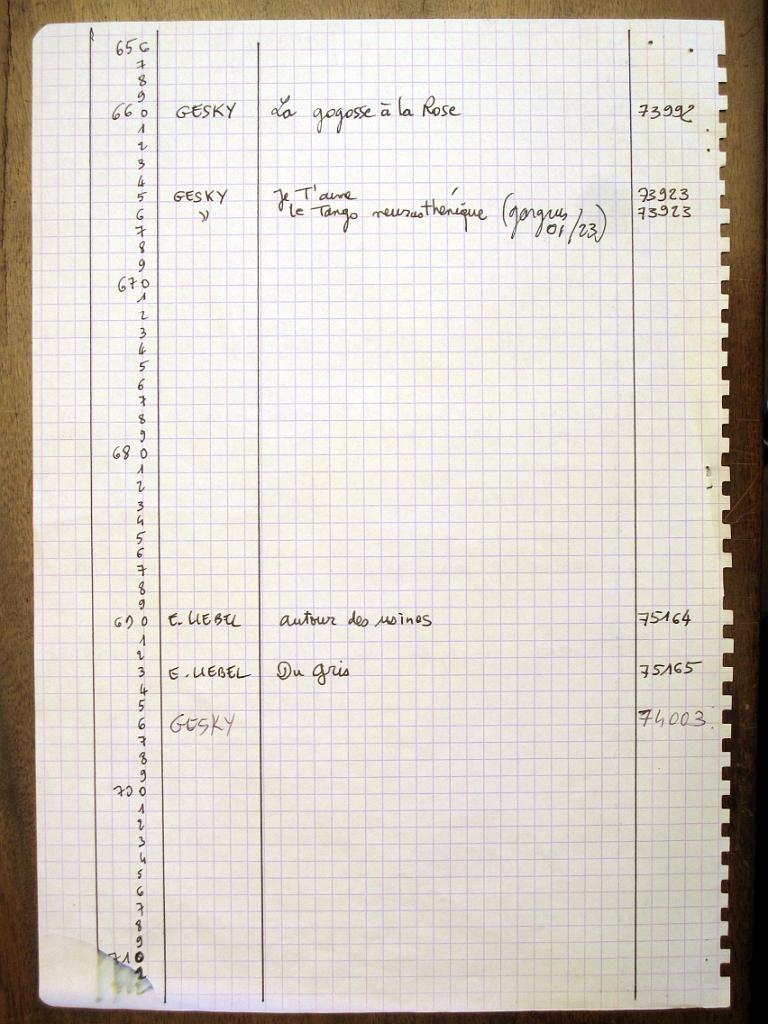 656
7
8
9
660 GESKY La gogosse à la Rose 73992
1
2
3
4
5 GESKY Je T'aime 73923
6 " le Tango neurasthénique ( 01/23) 73923
7
8
9
670
1
2
3
4
5
6
7
8
9
680
1
2
3
4
5
6
7
8
9
690 E. LIEBEL autour des usines 75164
1
2
3 E. LIEBEL Du Gris 75165
4
5
6 GESKY 74003
7
8
9
700
1
2
3
4
5
6
7
8
9
710